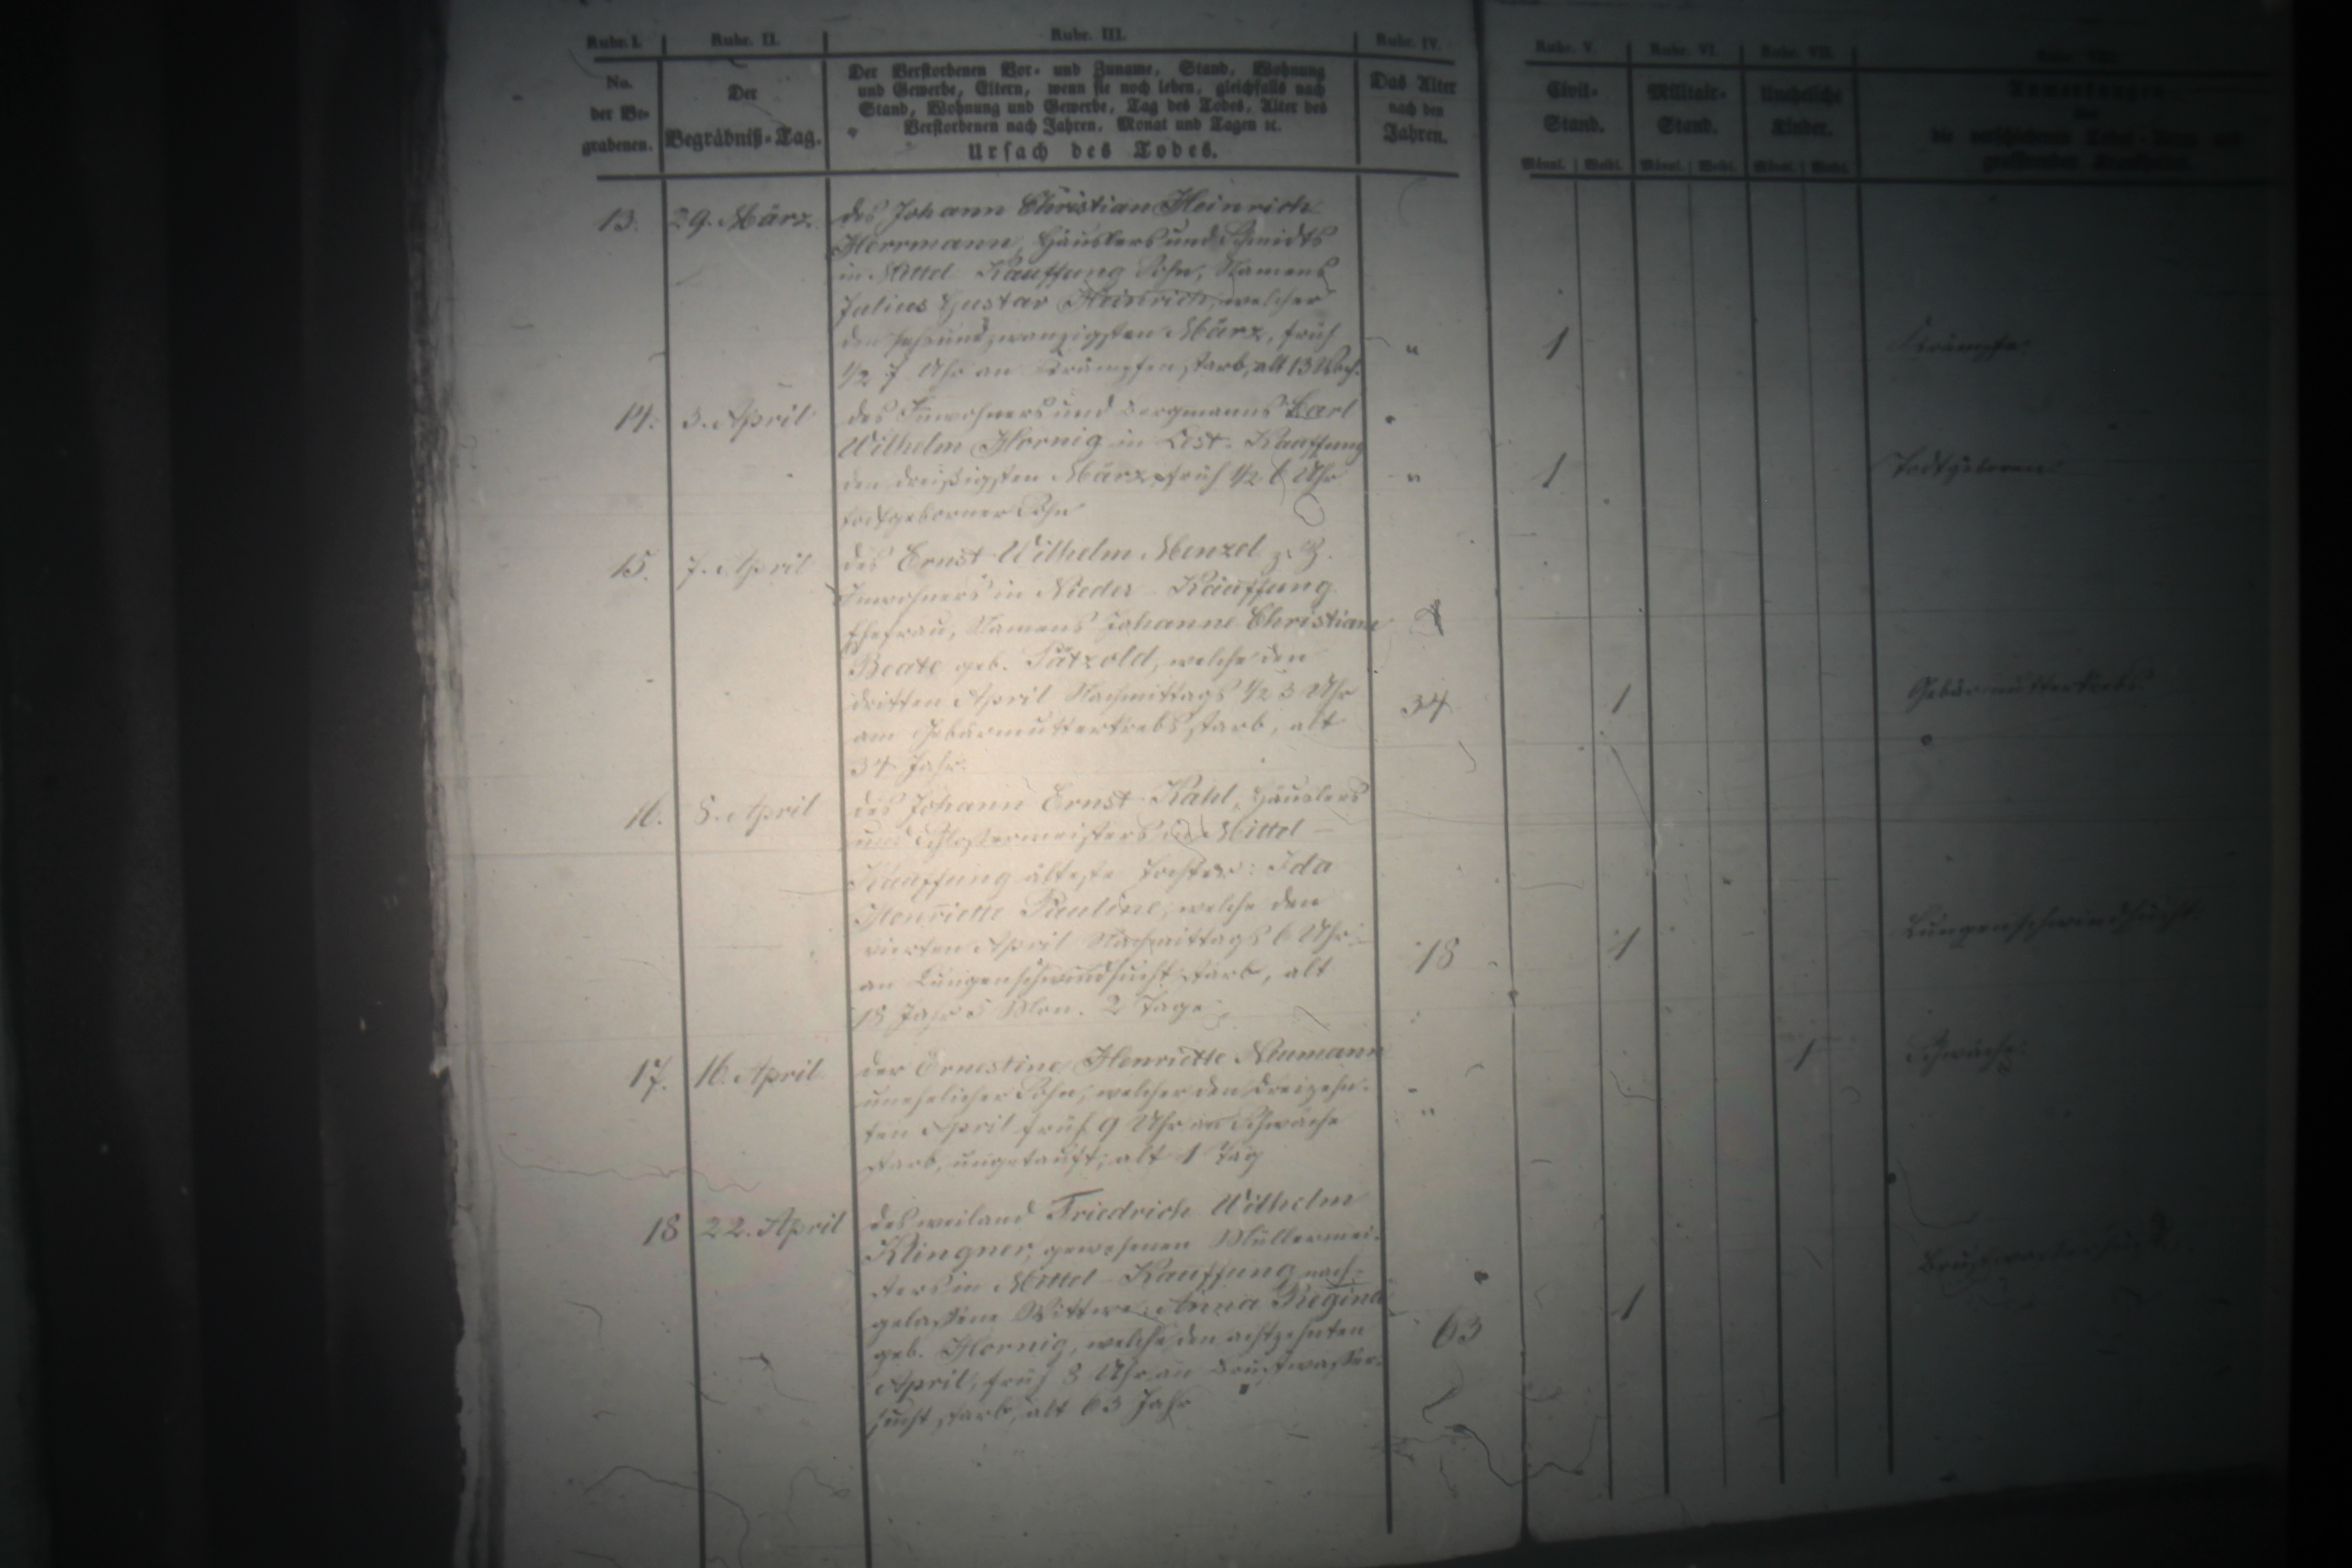 Rubr. I.
Rubr. II.
Rubr. III.
Rubr. IV.
Rubr. V.
Rubr. VI.
Rubr. VII.
No.
der Be-
grabenen.
Der
Begräbniß-Tag.
Der Verstorbenen Vor- und Zuname, Stand, Wohnung
und Gewerbe, Eltern, wenn sie noch leben, gleichfalls nach
Stand, Wohnung und Gewerbe, Tag des Todes, Alter des
Verstorbenen nach Jahren, Monat und Tagen ꝛc.
Ursach des Todes.
Das Alter
nach den
Jahren.
Civil-
Stand.
Militair-
Stand.
Uneheliche
Kinder.
Männl. Weibl. Männl. Weibl. Männl. Weibl.
13. 29. März
des Johann Christian Heinrich
Herrmann, Häuslers und Schmidts
in Mittel Kauffung Sohn, Namens
Julius Gustav Heinrich, welcher
den sechsundzwanzigsten März, früh
1/2 7 Uhr an Krämpfen starb, alt 13 Woch.
" 1 Krämpfe
14. 3. April
des Inwohners und Bergmanns Carl
Wilhelm Hornig in Kauffung
den dreißigsten März früh 1/2 6 Uhr
todtgeborner Sohn
" 1 Todtgeboren.
15. 7. April
des Ernst Wilhelm Menzel z. Z.
Inwohners in Nieder-Kauffung
Ehefrau, Namens Johanne Christiane
Beate geb. Pätzold, welche den
dritten April Nachmittags 1/2 3 Uhr
am Gebärmutterkrebs starb, alt
34 Jahr.
34 1 Gebärmutterkrebs
16. 8. April
des Johann Ernst Kahl, Häuslers
und Schlossermeisters in Mittel-
Kauffung älteste Tochter: Ida
Henriette Pauline, welche den
vierten April Nachmittags 6 Uhr
an Lungenschwindsucht starb, alt
18 Jahr 5 Mon. 2 Tage
18 1 Lungenschwindsucht
17. 16. April
der Ernestine Henriette Neumann
unehelicher Sohn, welcher den dreizehn-
ten April früh 9 Uhr an Schwäche
starb, ungetauft, alt 1 Tag
" 1 Schwäche.
18 22. April
des weiland Friedrich Wilhelm
Klingner, gewesenen Müllermei-
sters in Mittel-Kauffung nach-
gelassene Wittwe: Anna Regina
geb. Hornig, welche den achtzehnten
April, früh 8 Uhr an Brustwasser-
sucht starb, alt 63 Jahr
63 1 Brustwassersucht